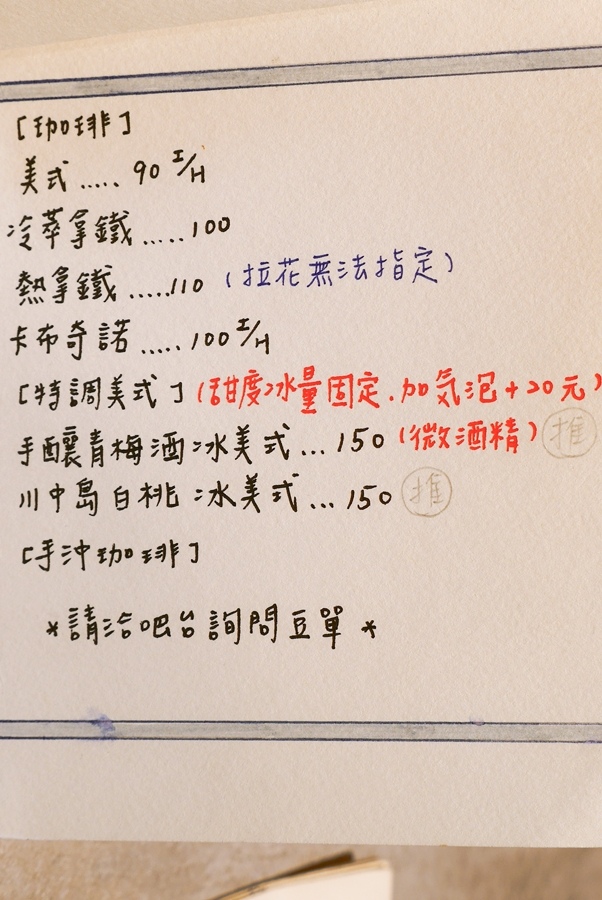 [珈琲]
美式.....90 I/H
冷萃拿鐵.....100
熱拿鐵.....110 (拉花無法指定)
卡布奇諾.....100 I/H
[特調美式] (甜度冰量固定.加気泡+20元)
手釀青梅酒冰美式...150 (微酒精) 推
川中島白桃冰美式...150 推
[手沖珈琲]
*請洽吧台詢問豆單*